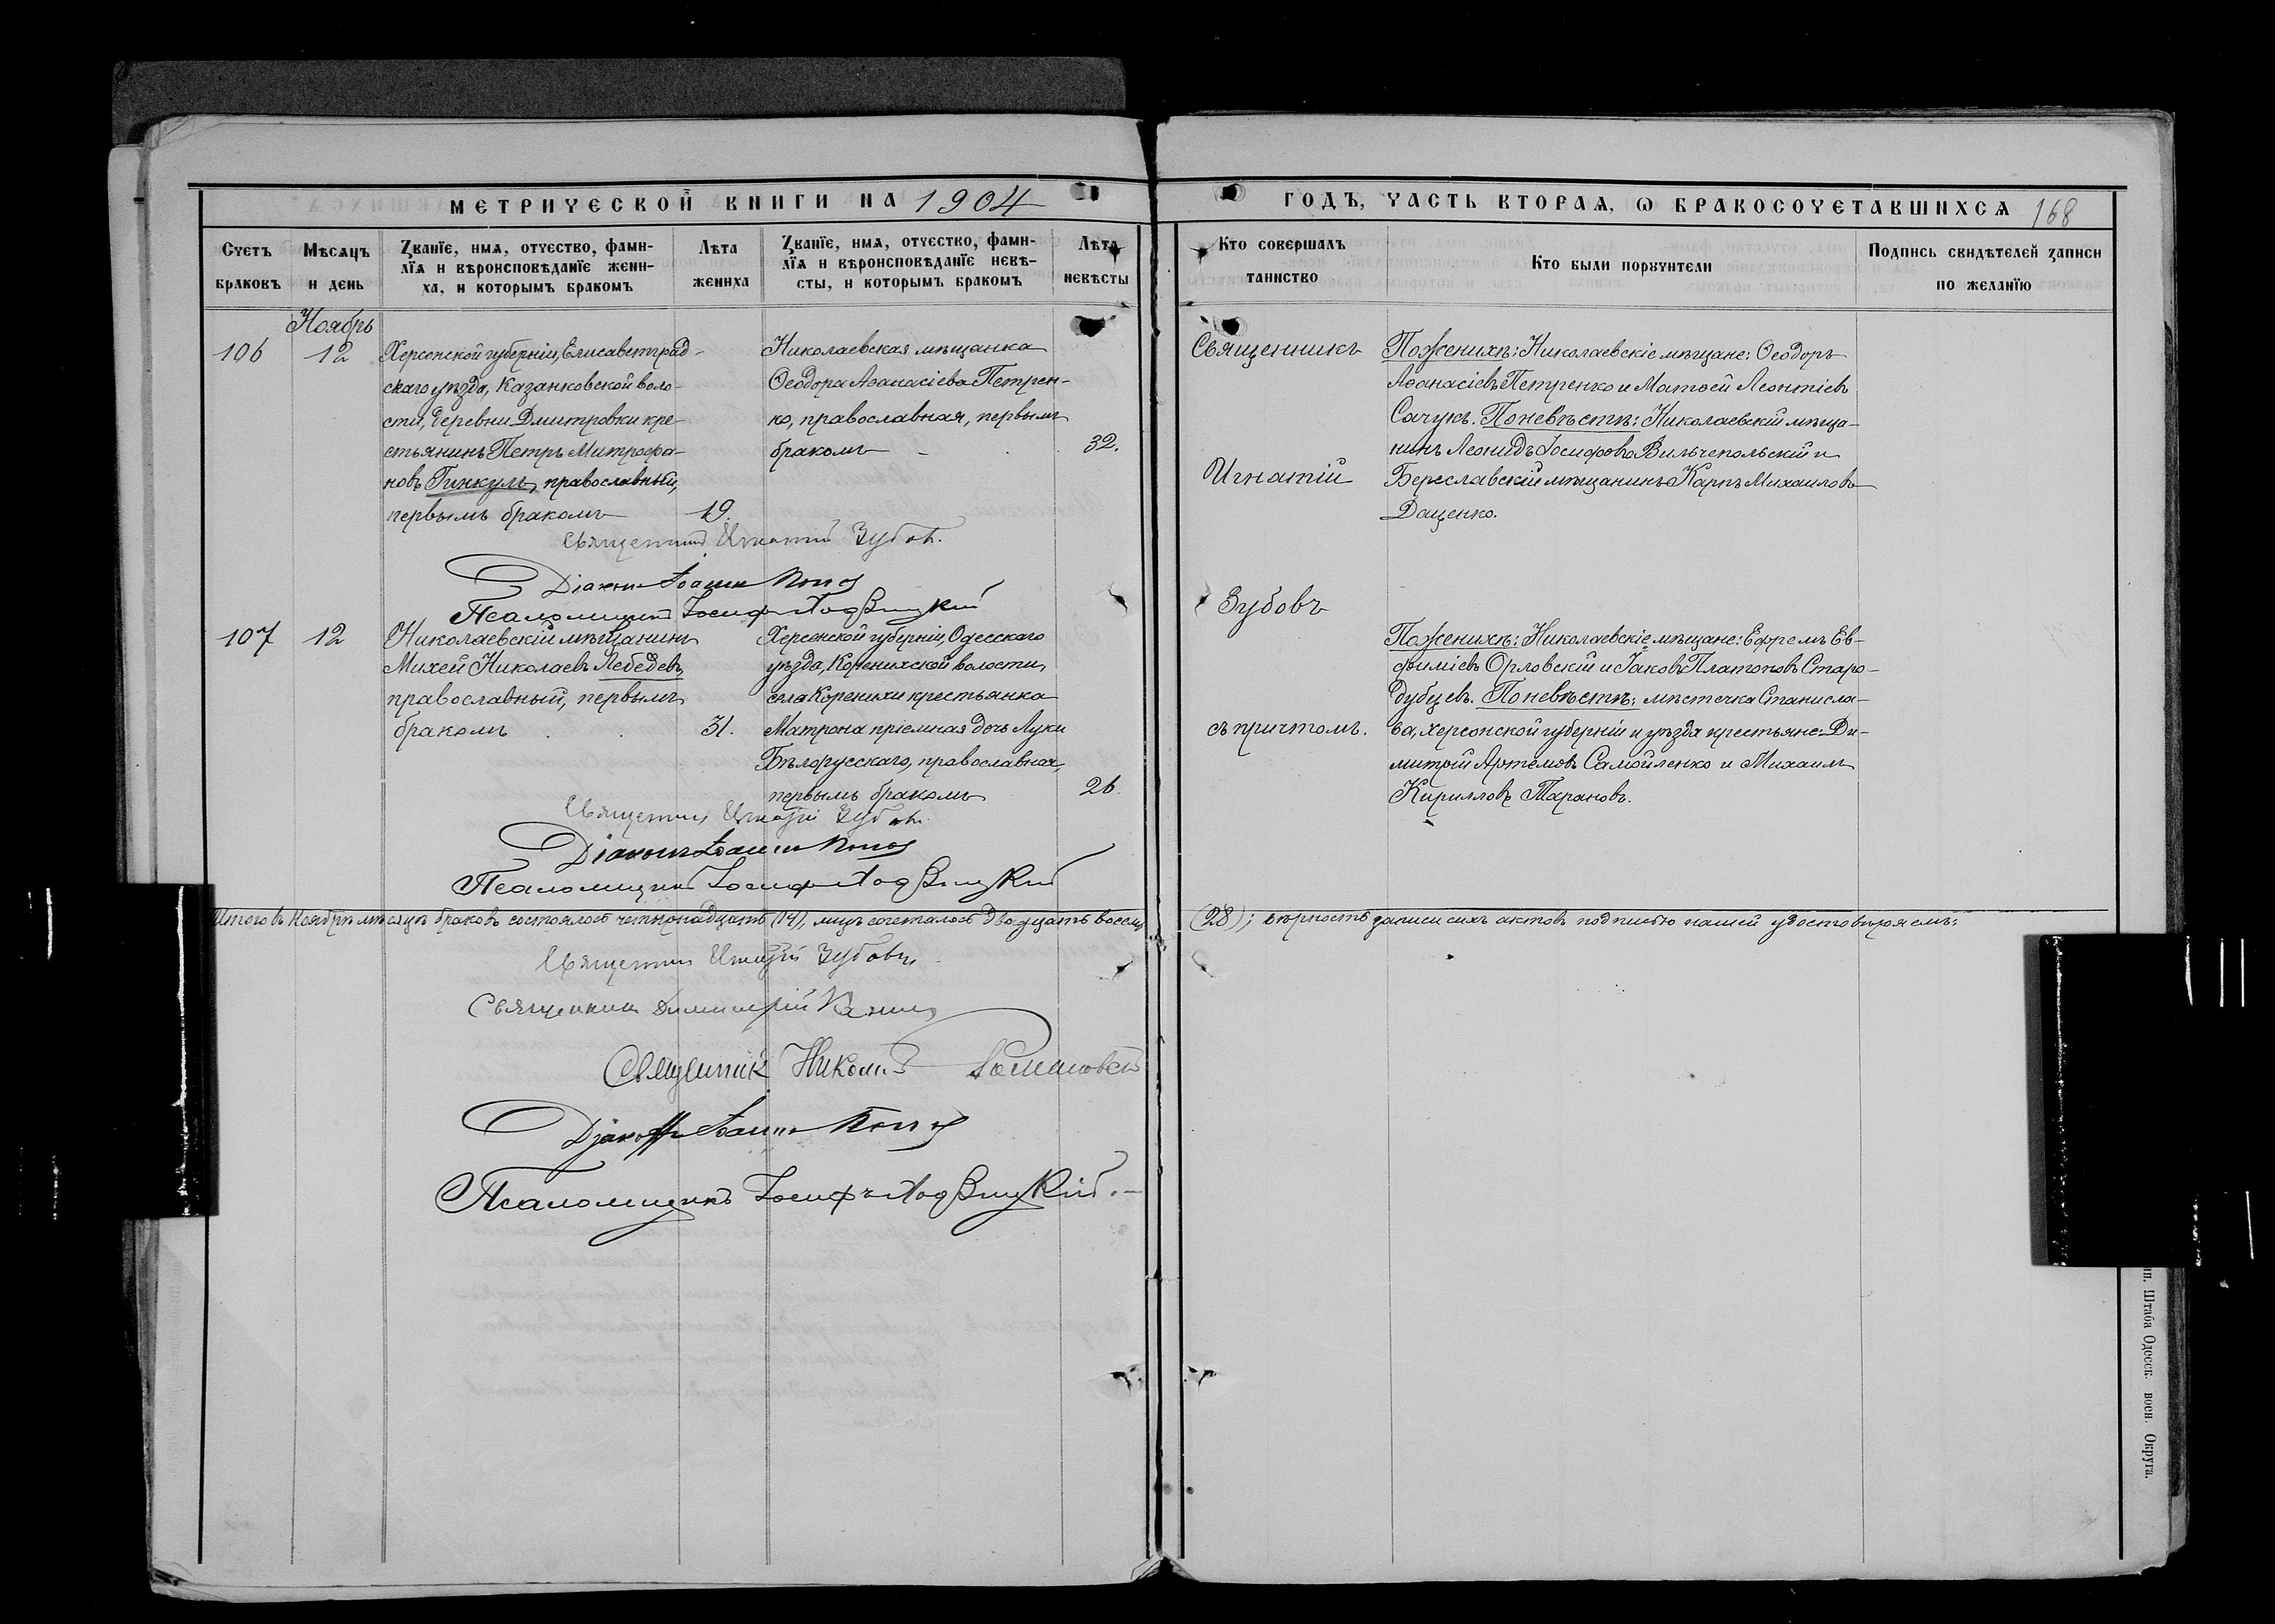 МЕТРИЧЕСКОЙ КНИГИ НА 1904
ГОДЪ, ЧАСТЬ ВТОРАѦ, Ѡ БРАКОСОЧЕТАВШИХСѦ 168
Счетъ браковъ
Мѣсѧцъ и день
Званїе, имѧ, отчество, фами-
лїѧ и вѣроисповѣданїе жени-
ха, и которымъ бракомъ
Лѣта жениха
Званїе, имѧ, отчество, фами-
лїѧ и вѣроисповѣданїе невѣ-
сты, и которымъ бракомъ
Лѣта невѣсты
Кто совершалъ таинство
Кто были порꙋчители
Подпись свидѣтелей записи по желанїю
Ноябрь
106
12
Херсонской губерніи, Елисаветград-
скаго уѣзда, Казанковской воло-
сти, деревни Дмитровки кре-
стьянинъ Петръ Митрофа-
новъ Гинкулъ, православный,
первымъ бракомъ
19.
Николаевская мѣщанка
Ѳеодора Аѳанасіева Петрен-
ко, православная, первымъ
бракомъ
32.
Священникъ
Игнатій
Зубовъ
съ причтомъ.
По женихѣ: Николаевскіе мѣщане: Ѳеодоръ
Аѳанасіевъ Петренко и Матѳей Леонтіевъ
Сачукъ. По невѣстѣ: Николаевскій мѣща-
нинъ Леонидъ Іосифовъ Вильчепольскій и
Береславскій мѣщанинъ Карпъ Михаиловъ
Даценко.
Священник Игнатій Зубовъ.
Діаконъ Іоаннъ Попов
Псаломщикъ Іосифъ Ходвицкий
107
12
Николаевскій мѣщанинъ
Михей Николаевъ Лебедевъ,
православный, первымъ
бракомъ
31.
Херсонской губерніи, Одесскаго
уѣзда, Коренихской волости,
села Коренихи крестьянка
Матрона пріемная дочь Луки
Бѣлорусскаго, православная,
первымъ бракомъ
26.
По женихѣ: Николаевскіе мѣщане: Ефремъ Ев-
фиміевъ Орловскій и Іаковъ Платоновъ Старо-
дубцевъ. По невѣстѣ: мѣстечка Станисла-
ва, Херсонской губерніи и уѣзда крестьяне: Ди-
митрій Артемовъ Самойленко и Михаилъ
Кирилловъ Тарановъ.
Священник Игнатій Зубовъ.
Діаконъ Іоаннъ Попов
Псаломщикъ Іосифъ Ходвицкій
Итого въ Ноябрѣ мѣсяцѣ браковъ состоялось четырнадцать (14), лицъ сочеталось двадцать восемь
(28); вѣрность записи сихъ актовъ подписью нашей удостовѣряемъ:
Священник Игнатій Зубовъ.
Священникъ Димитрій
Священник Николай
Діаконъ Іоаннъ Попов
Псаломщикъ Іосифъ Ходвицкій.
Штаба Одесск. воен. Округа.